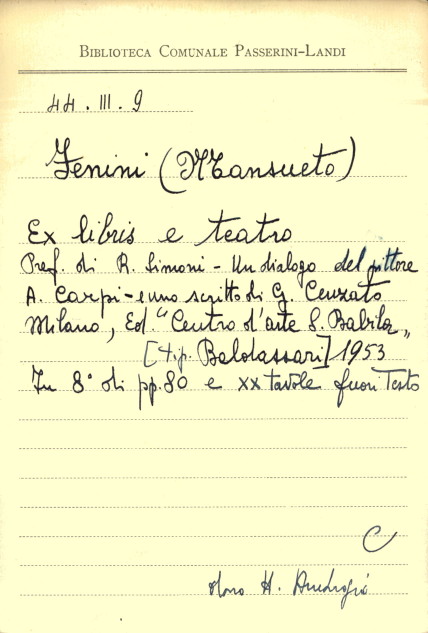 BIBLIOTECA COMUNALE PASSERINI-LANDI
44. III. 9
Fenini (Mansueto)
Ex libris e teatro
Pref. di R. Simoni - Un dialogo del pittore
A. Carpi - e uno scritto di G. Cenzato
Milano, Ed. "Centro d'arte S. Babila"
[tip. Baldassari] 1953
In 8° di pp. 80 e XX tavole fuori testo
C
dono H.